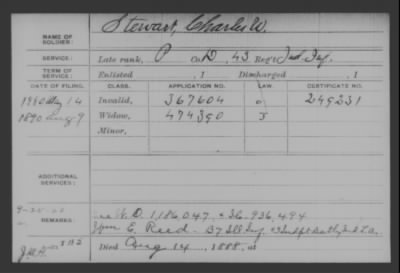 NAME OF SOLDIER: Stewart, Charles W.
SERVICE: Late rank, P Co. D, 43 Reg't Ind. Inf.
TERM OF SERVICE: Enlisted , 1 Discharged , 1
DATE OF FILING. CLASS. APPLICATION NO. LAW. CERTIFICATE NO.
1880 May 14 Invalid, 367604 249231
1890 Aug 9 Widow, 474390
Minor,
ADDITIONAL SERVICES:
REMARKS: W.O. 1,186,047 + 936,494
E. Reed B 7 Ill Inf,
Died Aug 14, 1888, at